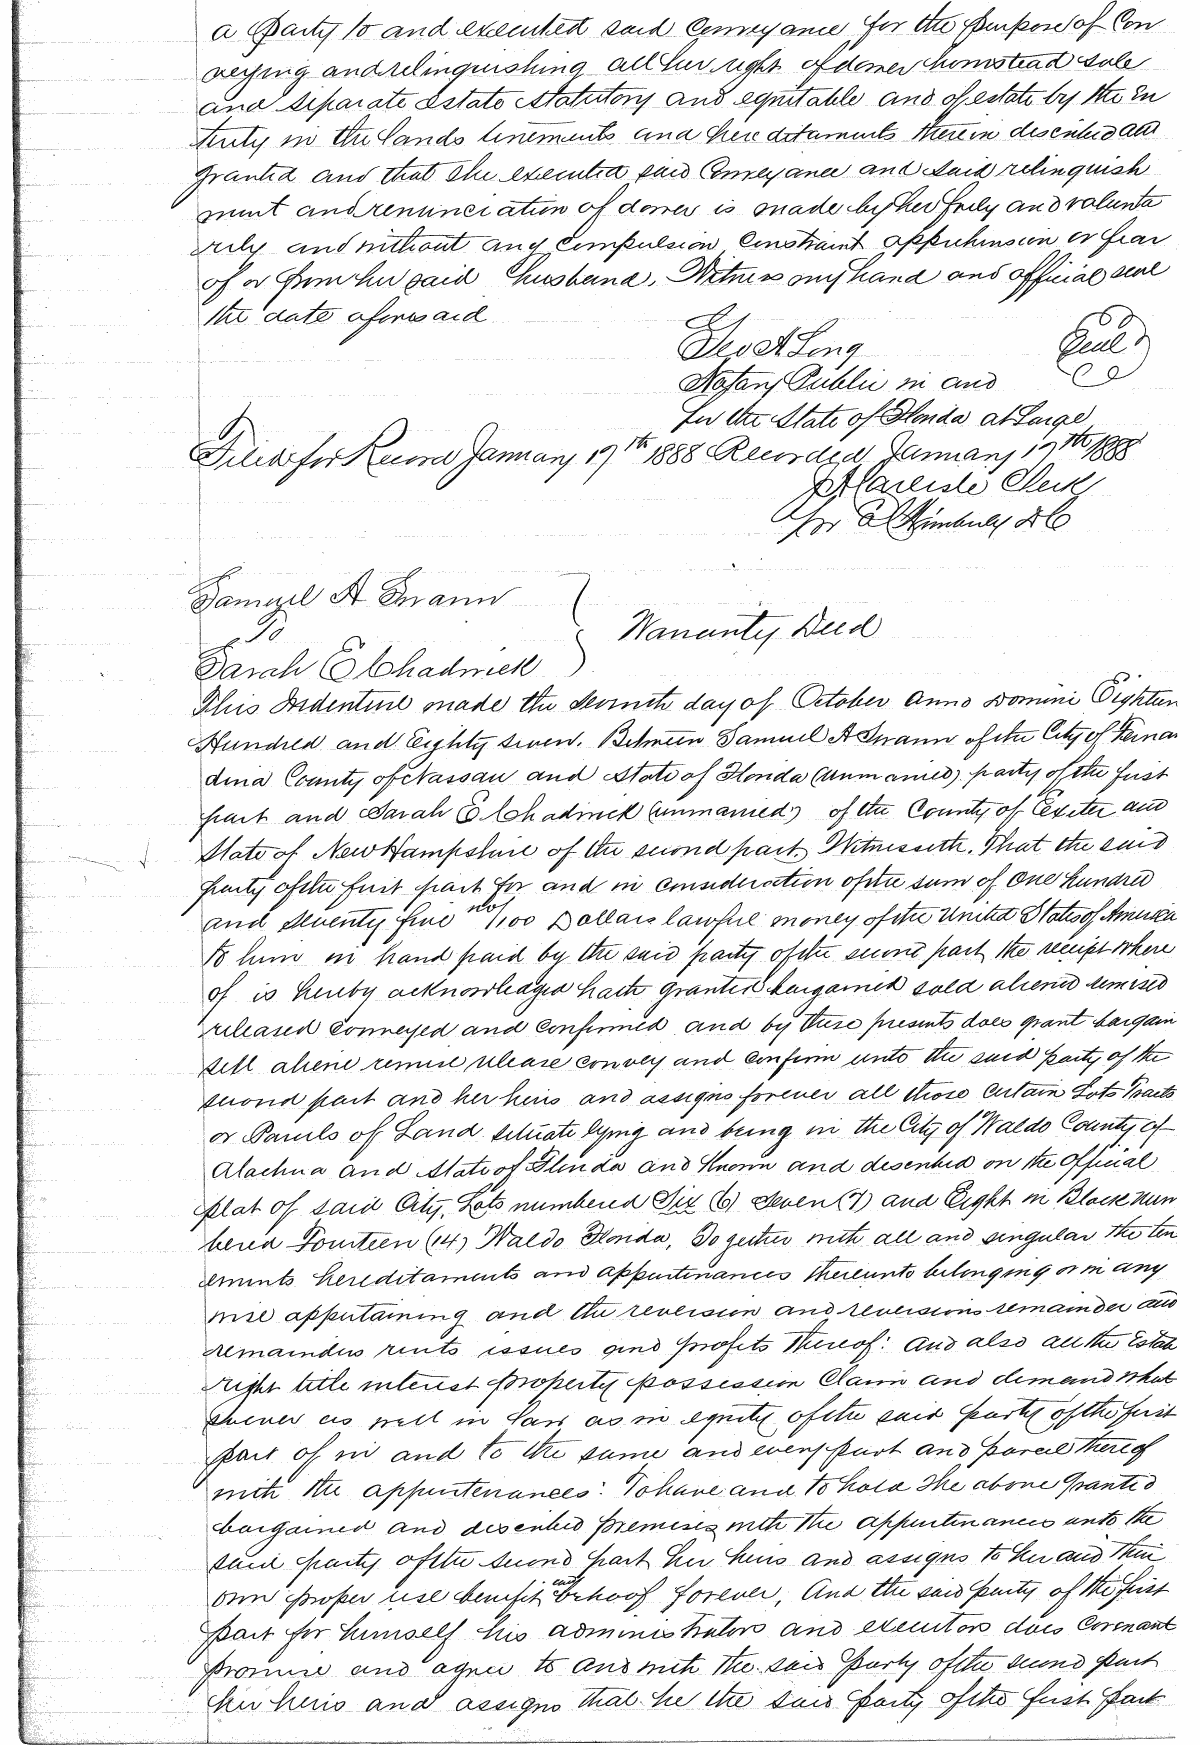 a Party to and executed said Conveyance for the purpose of Con
veying and relinquishing all her right of dower homestead sole
and separate Estate Statutory and equitable and of estate by the en
tirety in the lands tenements and hereditaments therein described and
granted and that she executed said Conveyance and said relinquish
ment and renunciation of dower is made by her freely and volunta
rily and without any Compulsion Constraint apprehension or fear
of or from her said husband. Witness my hand and official seal
the date aforesaid
Geo A Long Seal
Notary Public in and
for the State of Florida at Large
Filed for Record January 19th 1888 Recorded January 19th 1888
Clerk
for DC
Samuel A Swann
To Warranty Deed
Sarah E Chadwick
This Indenture made the Seventh day of October Anno Domini Eighteen
Hundred and Eighty seven. Between Samuel A Swann of the City of Ferna
dina County of Nassau and State of Florida (unmarried) party of the first
part and Sarah E Chadwick (unmarried) of the County of Exeter and
State of New Hampshire of the second part. Witnesseth. That the said
party of the first part for and in consideration of the sum of One hundred
and Seventy five no/100 Dollars lawful money of the United States of America
to him in hand paid by the said party of the second part the receipt where
of is hereby acknowledged hath granted bargained sold aliened remised
released conveyed and confirmed and by these presents does grant bargain
sell aliene remise release convey and confirm unto the said party of the
second part and her heirs and assigns forever all those certain Lots Tracts
or Parcels of Land situate lying and being in the City of Waldo County of
Alachua and State of Florida and Known and described on the Official
plat of said City, Lots numbered Six (6) Seven (7) and Eight in Block num
bered Fourteen (14) Waldo Florida, Together with all and singular the ten
ements hereditaments and appurtenances thereunto belonging or in any
wise appertaining and the reversion and reversions remainder and
remainders rents issues and profits thereof: And also all the Estate
right title interest property possession Claim and demand what
soever as well in law as in equity of the said party of the first
part of in and to the same and every part and parcel thereof
with the appurtenances: To have and to hold the above granted
bargained and described premises with the appurtenances unto the
said party of the second part her heirs and assigns to her and their
own proper use benefit and behoof forever, And the said party of the first
part for himself his administrators and executors does Covenant
promise and agree to and with the said Party of the second part
her heirs and assigns that he the said party of the first part